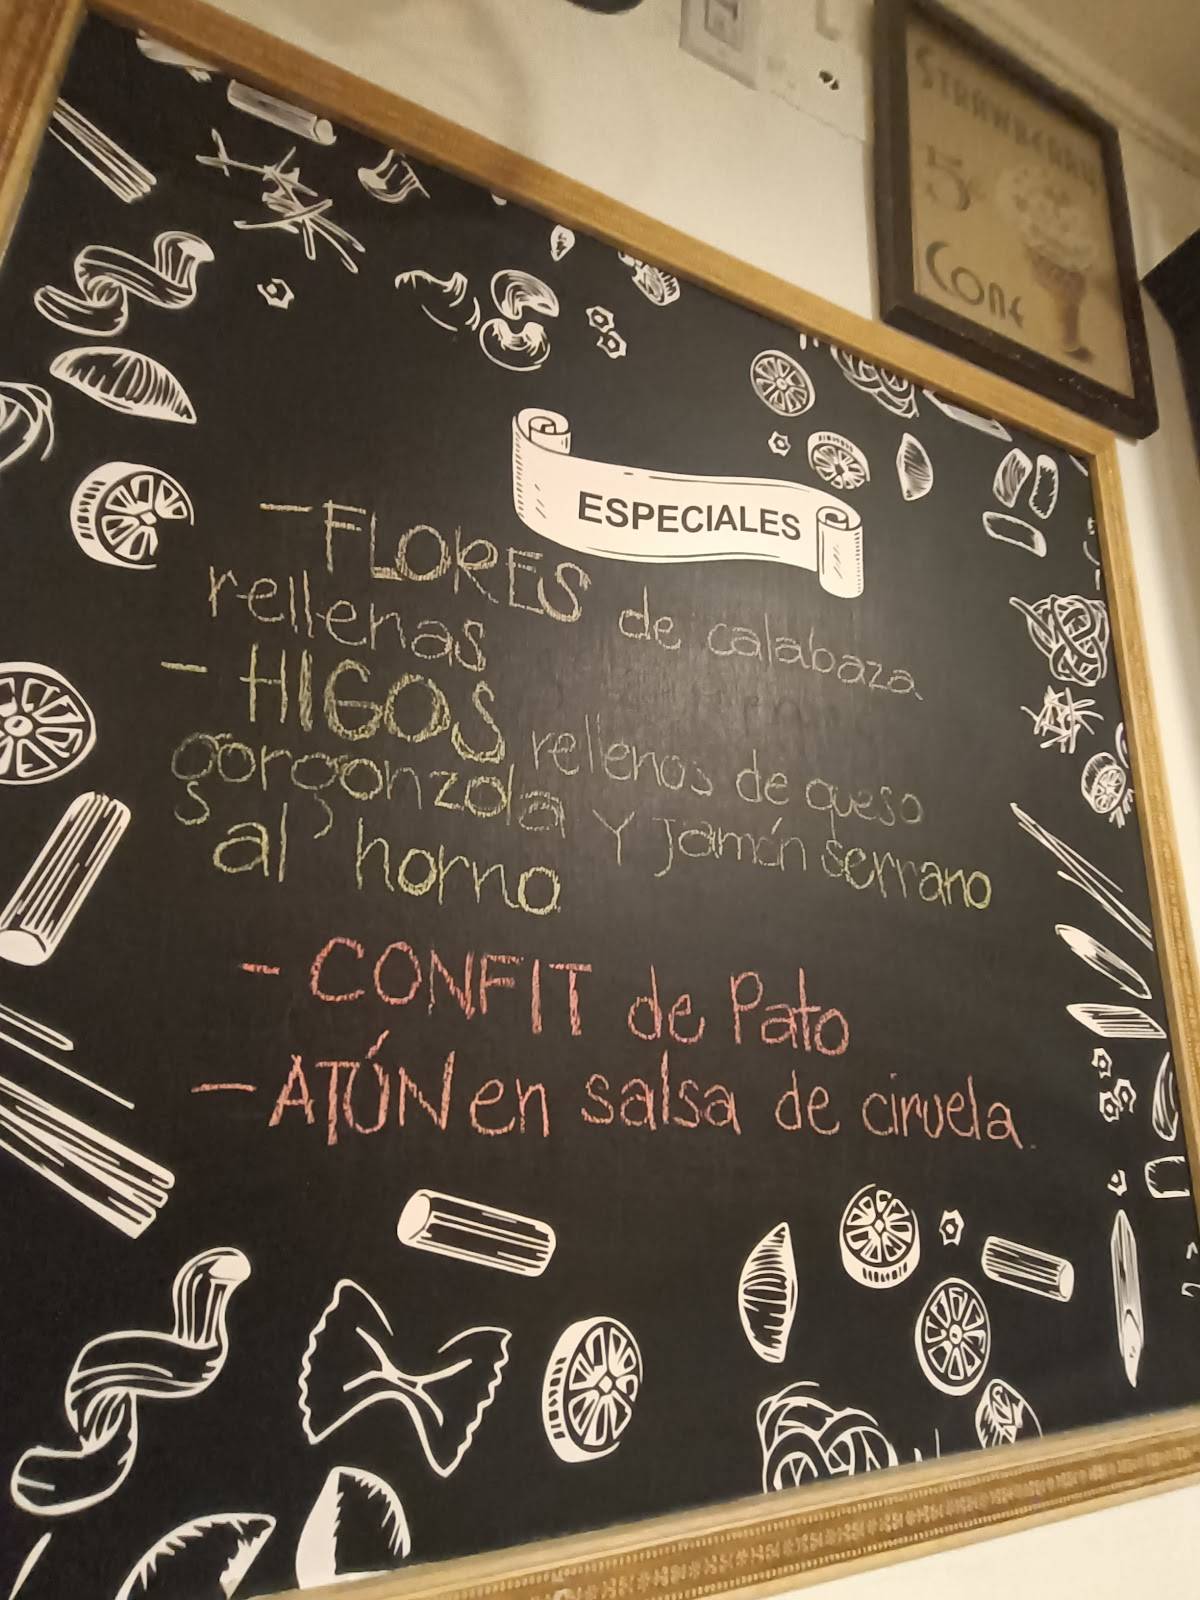 STRAWBERRY
5¢
CONE
ESPECIALES
- FLORES de calabaza
rellenas
- HIGOS rellenos de queso
gorgonzola y Jamón serrano
al horno
- CONFIT de Pato
- ATÚN en salsa de ciruela